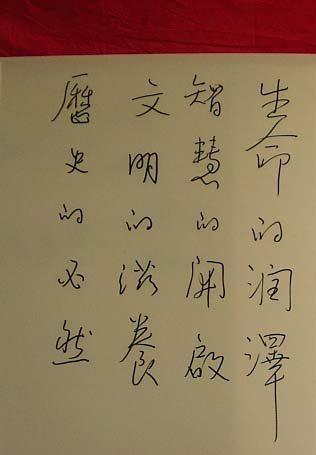 生命的润澤
智慧的開啟
文明的滋養
歷史的必然